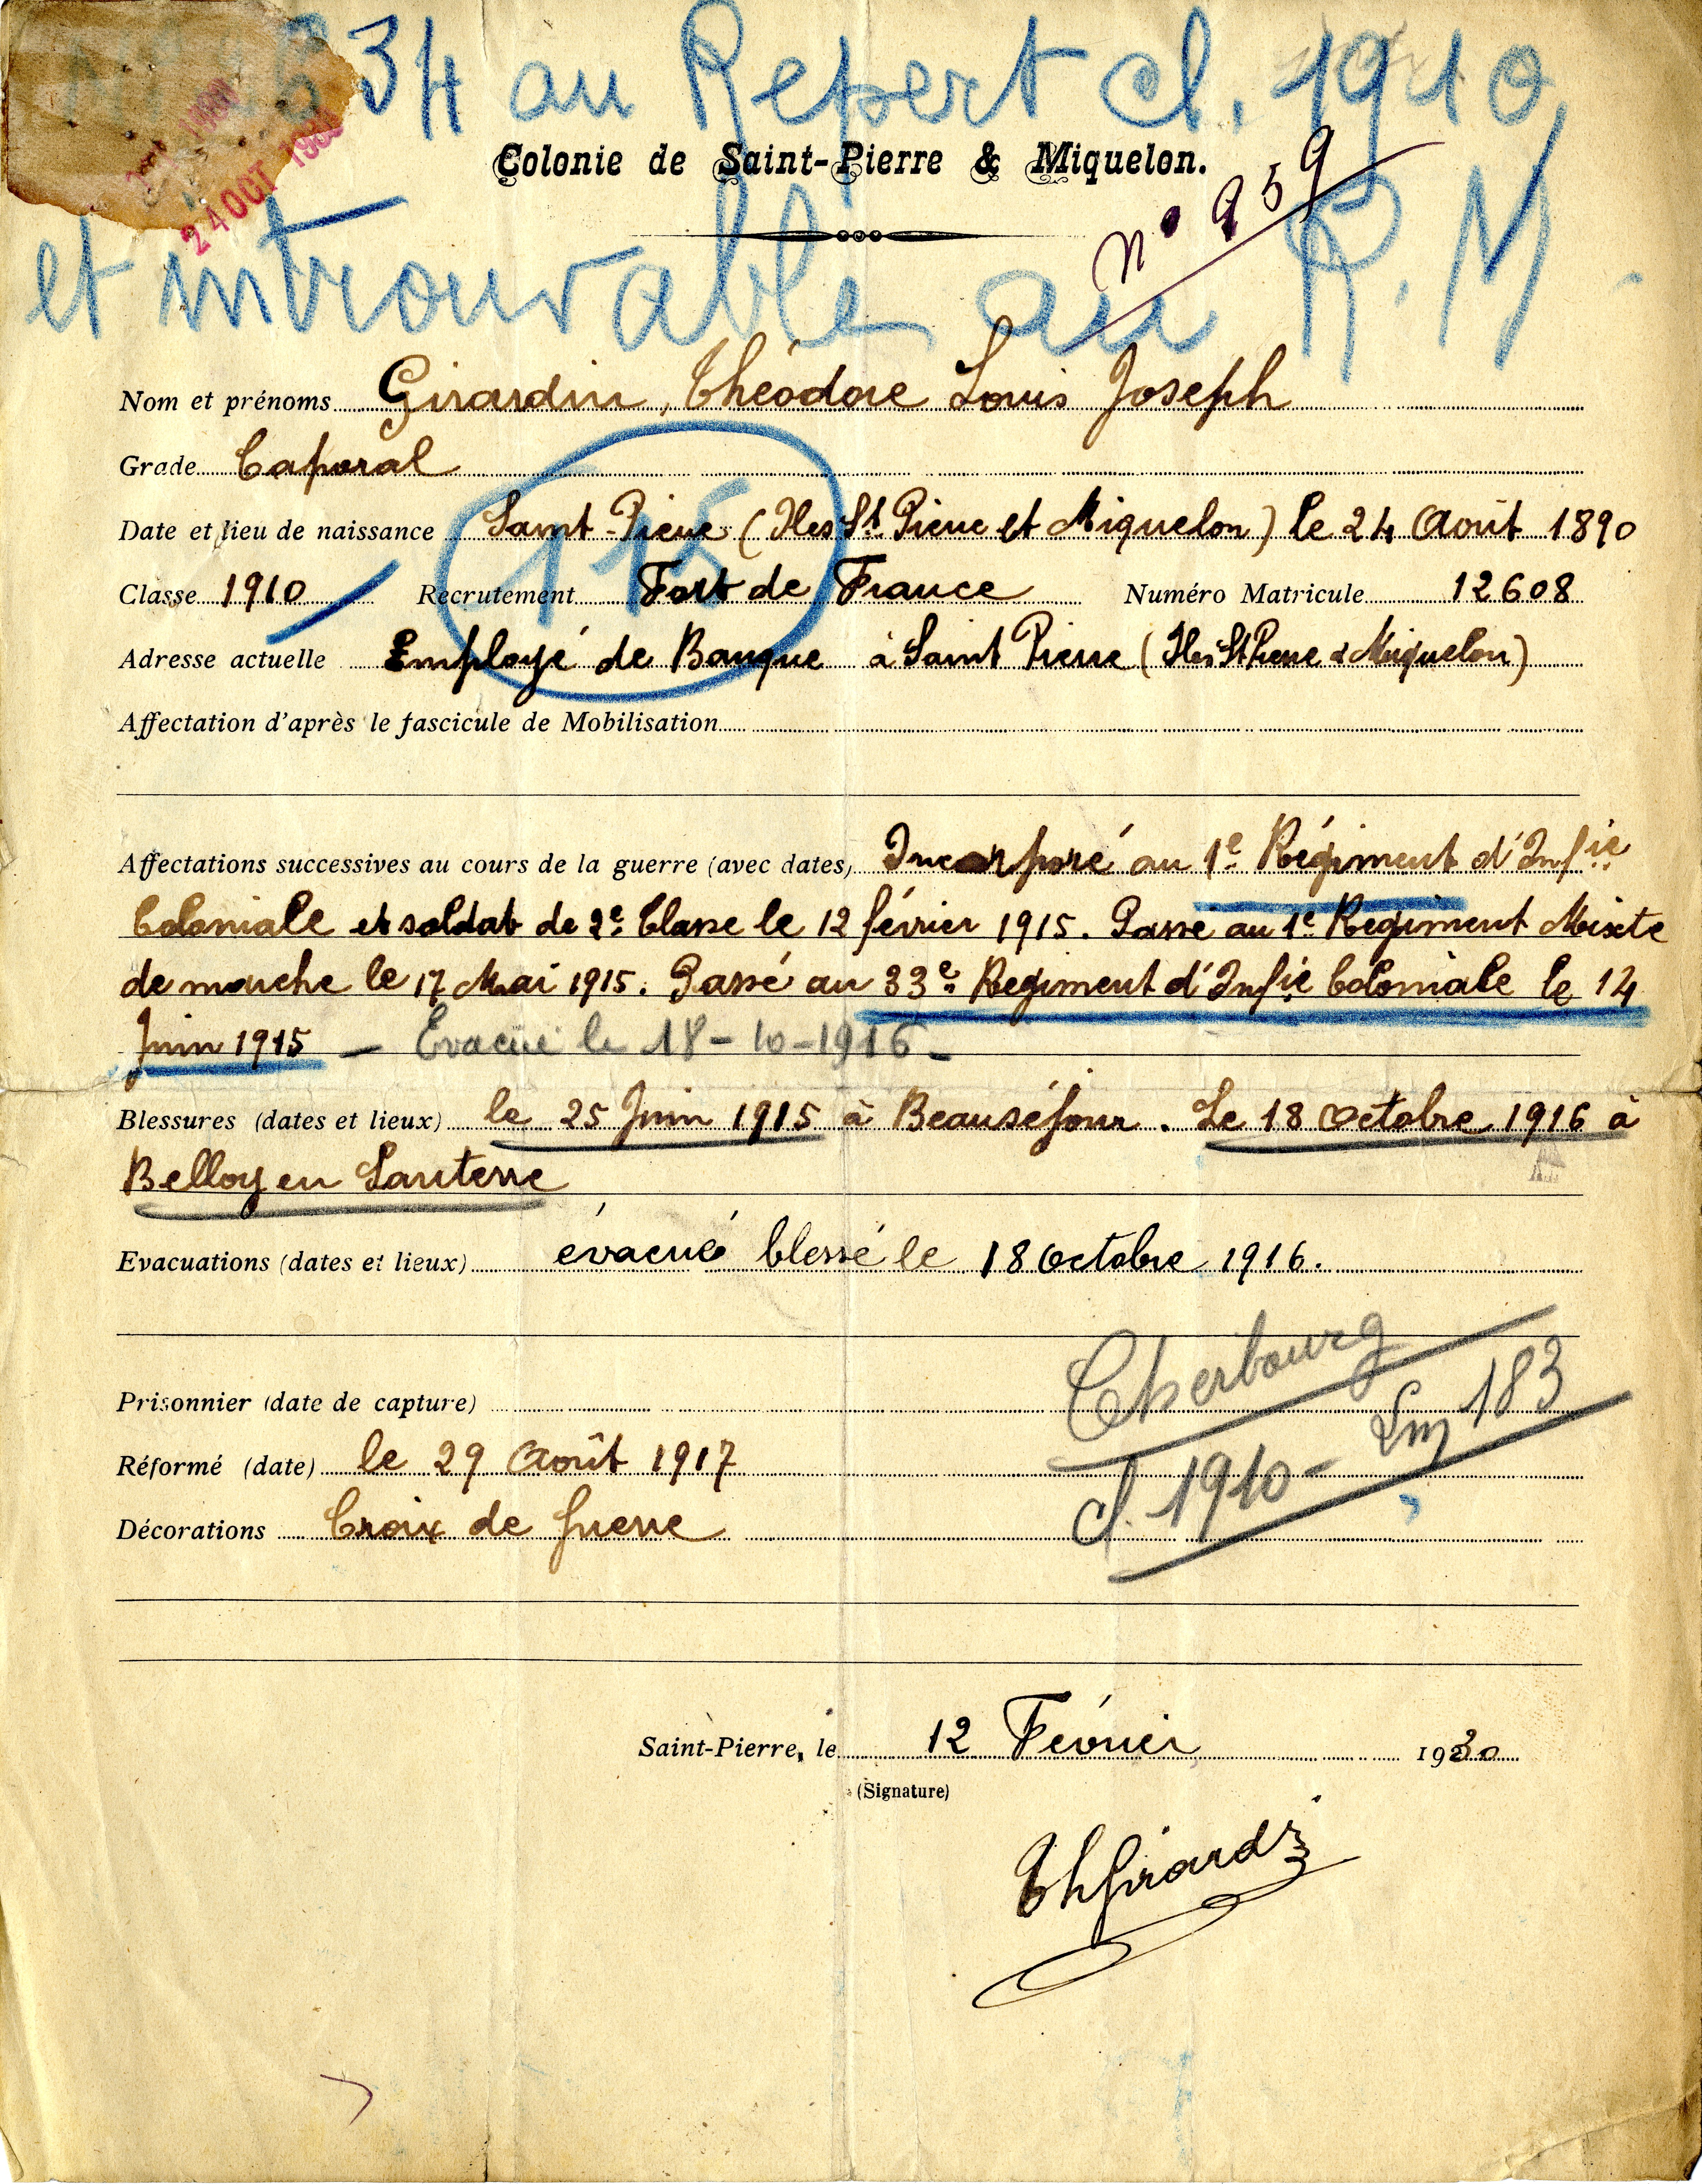 34 au Répert cl. 1910
24 OCT 19
Colonie de Saint-Pierre & Miquelon.
n° 959
et introuvable au R. M.
Nom et prénoms Girardin, Théodore Louis Joseph
Grade Caporal
115
Date et lieu de naissance Saint-Pierre (Iles St. Pierre et Miquelon) le 24 Août 1890
Classe 1910 Recrutement Fort de France Numéro Matricule 12608
Adresse actuelle Employé de Banque à Saint Pierre (Iles St Pierre & Miquelon)
Affectation d'après le fascicule de Mobilisation
Affectations successives au cours de la guerre (avec dates) Incorporé au 1e Régiment d'Infie
Coloniale et soldat de 2e Classe le 12 février 1915. Passé au 1e Regiment Mixte
de marche le 17 Mai 1915. Passé au 33e Regiment d'Infie Coloniale le 14
Juin 1915 — Evacué le 18-10-1916 -
Blessures (dates et lieux) le 25 Juin 1915 à Beauséjour. Le 18 Octobre 1916 à
Belloy en Santerre
Evacuations (dates et lieux) évacué blessé le 18 Octobre 1916.
Cherbourg
Prisonnier (date de capture)
cl. 1910 - Lm 183
Réformé (date) le 29 Août 1917
Décorations Croix de guerre
Saint-Pierre, le 12 Février 1930
(Signature)
Th Girardin